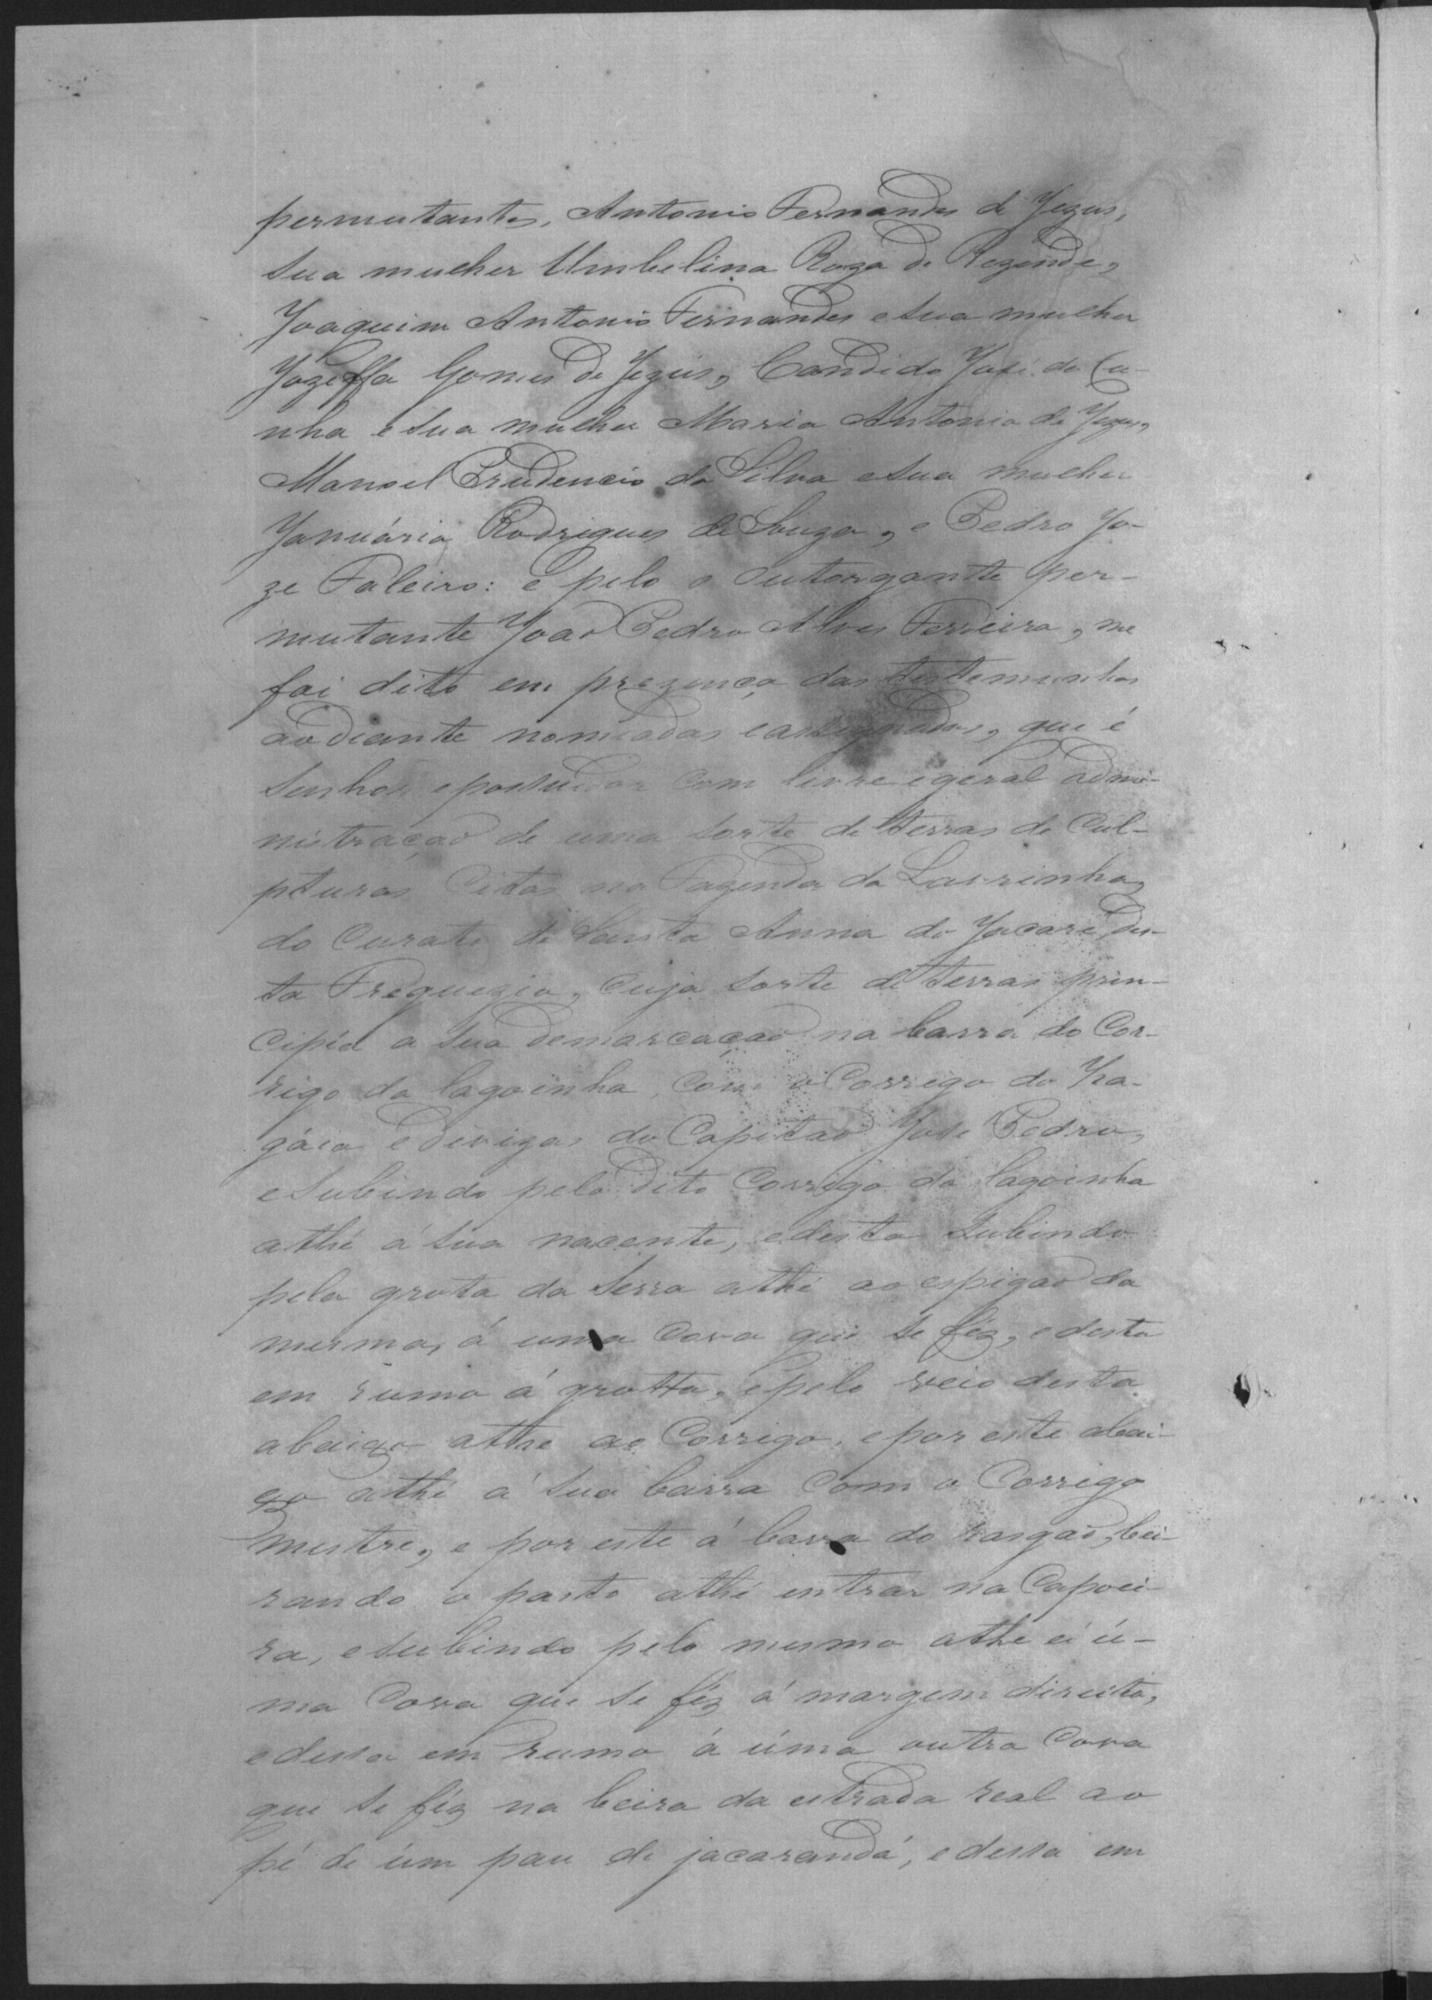 permutantes, Antonio Fernandes de Jezus,
sua mulher Umbelina Roza de Rezende,
Joaquim Antonio Fernandes e sua mulher
Jozeffa Gomes de Jezús, Candido José da Cu-
nha e sua mulher Maria Antonia de Jezus,
Manoel Prudencio da Silva e sua mulher
Januária Rodrigues de Souza, e Pedro Jo-
ze Faleiro: e pelo o outorgante per-
mutante João Pedro Alves Ferreira, me
foi dito em prezença das testemunhas
ao diante nomiadas e assignadas, que é
Senhor e possuidor com livre e geral admi-
nistração de uma sorte de terras de Cul-
pturas Citas na Fazenda da Lavrinha,
do Curato de Santa Anna do Jacaré des-
ta Freguezia, cuja sorte de terras prin-
cipia a sua demarcação na barra do Cor-
rigo da lagoinha, com o Corrego do
e divizas do Capitão José Pedro,
e Subindo pelo dito Corrigo da lagoinha
athé á sua nacente, e desta Subindo
pela grota da Serra athé ao espigão da
mesma, á uma Cova que se fêz, e desta
em rumo á grotta, e pelo veio desta
abaixo athe ao Corrigo, e por este abai-
xo athé á sua barra com o Corrigo
mestre, e por este á barra do rasgão, bei-
rando o pasto athé entrar na Capoei-
ra, e subindo pelo mesmo athe á ú-
ma Cova que se fêz á margem direita,
e dessa em rumo á úma outra Cova
que se fêz na beira da estrada real ao
pé de úm pau de jacarandá, e dessa em